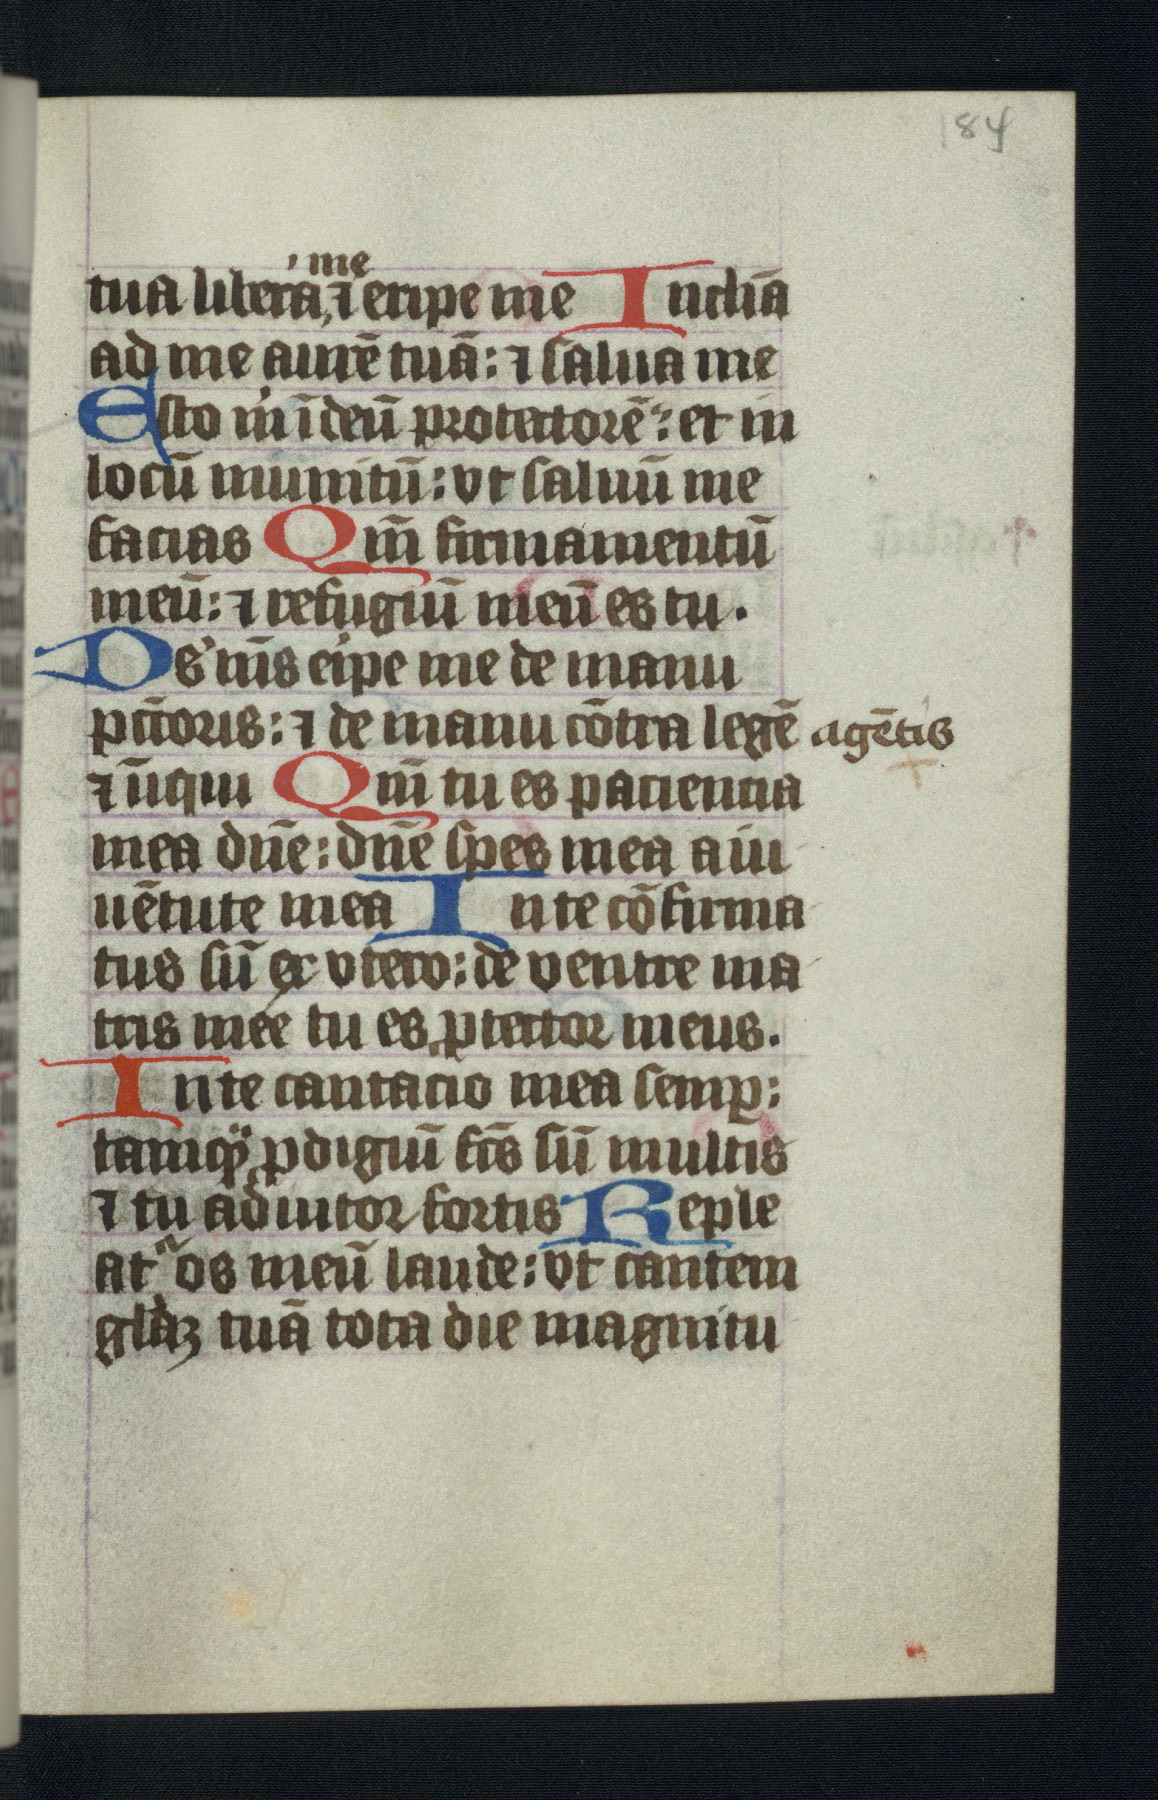 184
me
tua libera, ⁊ eripe me Inclīa
ad me aurē tuā: ⁊ salua me
Esto mͥ ī deū protectorē: et in
locū munitū: vt saluū me
facias Qm̄ firmamentū
meū: ⁊ refugiū meū es tu.
Ds mr̄s eͥpe me de manu
pctōris: ⁊ de manu cōtra legē agētis
⁊ īiqui Qm̄ tu es paciencia
mea dn̄e: dn̄e spes mea a iu
uētute mea In te cōfirma
tus sū ex vtero: de ventre ma
tris mee tu es ꝓtector meus.
In te cantacio mea semꝑ:
tamqͣ ꝓdigiū fc̄s sū multis
⁊ tu adiutor fortis Reple
atͬ os meū laude: vt cantem
glāꝫ tuā tota die magnitu